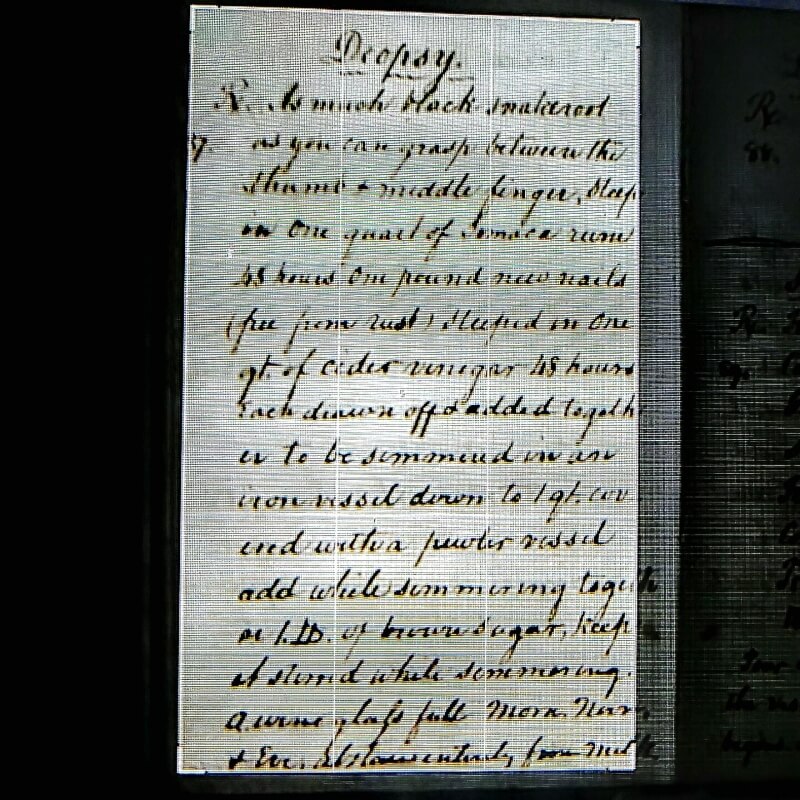 Dropsy.
R. As much black snakeroot
7. as you can grasp between the
thumb + middle finger, steep
in one quart of Jamaca rum
48 hours One pound new nails
(free from rust) steeped in one
qt. of cider vinegar 48 hours
Each drawn off & added togeth
er to be simmered in an
iron vessel down to 1 qt. cov
ered with a pewter vessel
add while simmering togeth
er 1. lb. of brown sugar, keep
it stirred while simmering.
A wine glass full Morn. Noon,
& Eve. Abstain entirely from milk
Rx